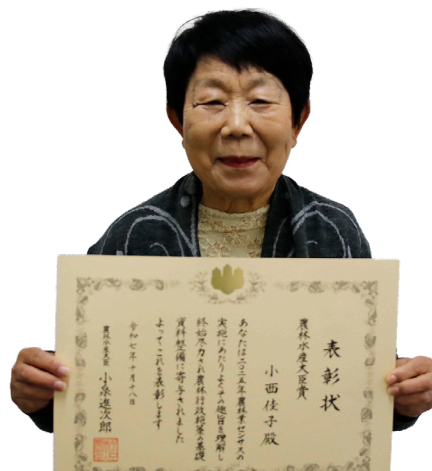 表彰状
農林水産大臣賞
小西佳子殿
あなたは二〇二五年農林業センサスの
実施にあたりよくその趣旨を理解し
終始尽力され農林行政施策の基礎
資料整備に寄与されました
よってこれを表彰します
令和七年十月十八日
農林水産大臣 小泉進次郎